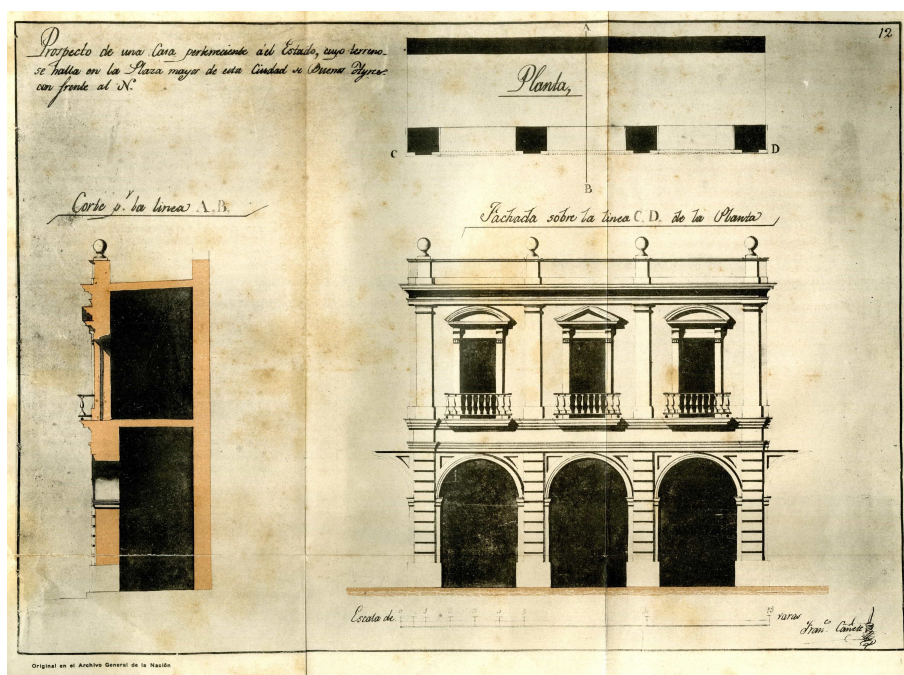 Prospecto de una Casa perteneciente á el Estado, cuyo terreno
se halla en la Plaza mayor de esta Ciudad de Buenos Ayres
con frente al N.
12
A
Planta,
C
D
B
Corte p.r la linea A.B.
Fachada sobre la linea C.D. de la Planta
Escala de
varas
Fran.co Cañete
Original en el Archivo General de la Nación